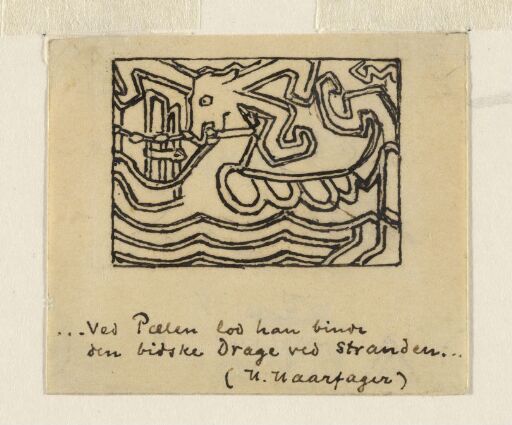 ...Ved Pælen lod han binde
den bidske Drage ved Stranden...
(H. Haarfager)